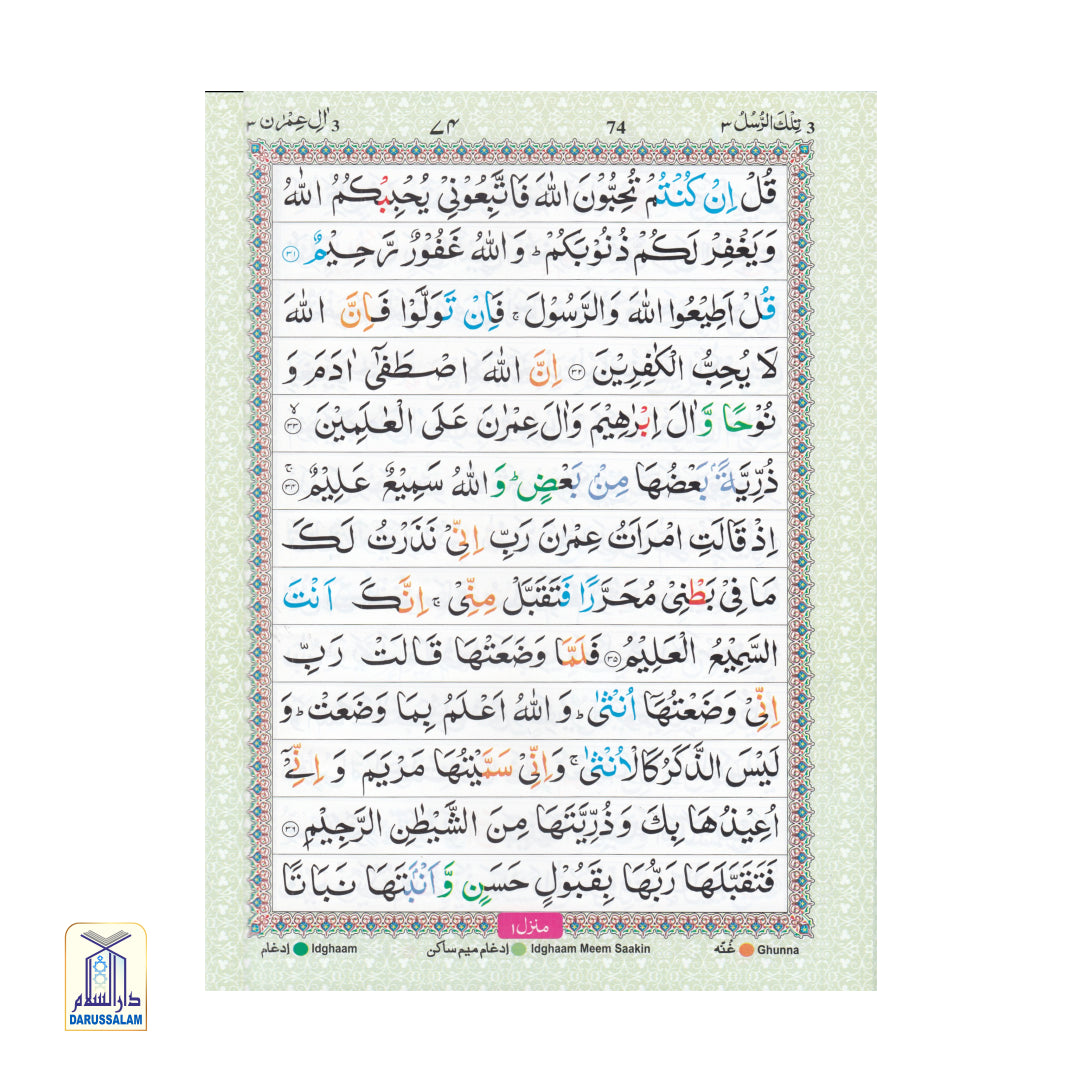 3 تِلْكَ الرُّسُلُ ٣ 74 ٧٤ 3 اٰلِ عِمْرٰن ٣
قُلْ اِنْ كُنْتُمْ تُحِبُّوْنَ اللّٰهَ فَاتَّبِعُوْنِيْ يُحْبِبْكُمُ اللّٰهُ
وَيَغْفِرْ لَكُمْ ذُنُوْبَكُمْ ؕ وَاللّٰهُ غَفُوْرٌ رَّحِيْمٌ ﴿٣١﴾
قُلْ اَطِيْعُوا اللّٰهَ وَالرَّسُوْلَ ۚ فَاِنْ تَوَلَّوْا فَاِنَّ اللّٰهَ
لَا يُحِبُّ الْكٰفِرِيْنَ ﴿٣٢﴾ اِنَّ اللّٰهَ اصْطَفٰۤى اٰدَمَ وَ
نُوْحًا وَّاٰلَ اِبْرٰهِيْمَ وَاٰلَ عِمْرٰنَ عَلَى الْعٰلَمِيْنَ ﴿٣٣﴾ ۙ
ذُرِّيَّةًۢ بَعْضُهَا مِنْۢ بَعْضٍ ؕ وَاللّٰهُ سَمِيْعٌ عَلِيْمٌ ﴿٣٤﴾ ۚ
اِذْ قَالَتِ امْرَاَتُ عِمْرٰنَ رَبِّ اِنِّيْ نَذَرْتُ لَكَ
مَا فِيْ بَطْنِيْ مُحَرَّرًا فَتَقَبَّلْ مِنِّيْ ۚ اِنَّكَ اَنْتَ
السَّمِيْعُ الْعَلِيْمُ ﴿٣٥﴾ فَلَمَّا وَضَعَتْهَا قَالَتْ رَبِّ
اِنِّيْ وَضَعْتُهَاۤ اُنْثٰى ؕ وَاللّٰهُ اَعْلَمُ بِمَا وَضَعَتْ ؕ وَ
لَيْسَ الذَّكَرُ كَالْاُنْثٰى ۚ وَاِنِّيْ سَمَّيْتُهَا مَرْيَمَ وَاِنِّيْۤ
اُعِيْذُهَا بِكَ وَذُرِّيَّتَهَا مِنَ الشَّيْطٰنِ الرَّجِيْمِ ﴿٣٦﴾
فَتَقَبَّلَهَا رَبُّهَا بِقَبُوْلٍ حَسَنٍ وَّاَنْۢبَتَهَا نَبَاتًا
منزل ١
Ghunna غُنّه Idghaam Meem Saakin إدغام ميم ساكن Idghaam إدغام
دار السلام
DARUSSALAM